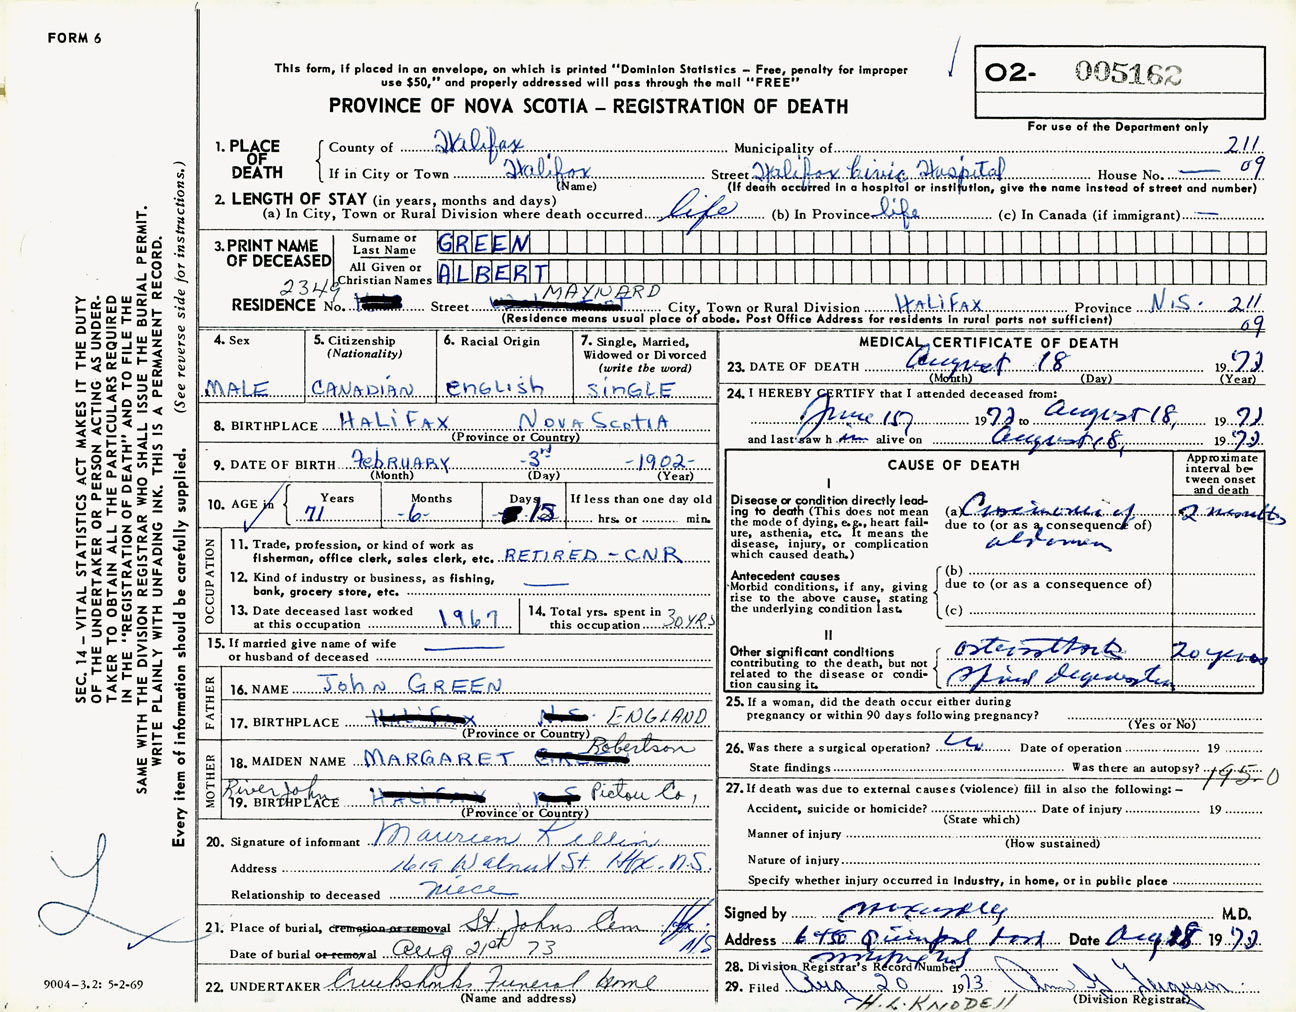 FORM 6
This form, if placed in an envelope, on which is printed "Dominion Statistics – Free, penalty for improper
use $50," and properly addressed will pass through the mail "FREE"
PROVINCE OF NOVA SCOTIA – REGISTRATION OF DEATH
02- 005162
For use of the Department only
1. PLACE OF DEATH
County of Halifax Municipality of 211
If in City or Town Halifax Street Halifax Civic Hospital House No. — 09
(Name) (If death occurred in a hospital or institution, give the name instead of street and number)
2. LENGTH OF STAY (in years, months and days)
(a) In City, Town or Rural Division where death occurred life (b) In Province life (c) In Canada (if immigrant) —
3. PRINT NAME OF DECEASED
Surname or Last Name GREEN
All Given or Christian Names ALBERT
RESIDENCE No. 2349 Street MAYNARD City, Town or Rural Division HALIFAX Province N.S. 211
(Residence means usual place of abode. Post Office Address for residents in rural parts not sufficient) 09
4. Sex MALE
5. Citizenship (Nationality) CANADIAN
6. Racial Origin English
7. Single, Married, Widowed or Divorced (write the word) SINGLE
8. BIRTHPLACE HALIFAX NOVA SCOTIA
(Province or Country)
9. DATE OF BIRTH FEBRUARY -3rd -1902-
(Month) (Day) (Year)
10. AGE in Years 71 Months -6- Days 15 If less than one day old
hrs. or min.
OCCUPATION
11. Trade, profession, or kind of work as
fisherman, office clerk, sales clerk, etc. RETIRED – CNR
12. Kind of industry or business, as fishing,
bank, grocery store, etc. —
13. Date deceased last worked
at this occupation 1967
14. Total yrs. spent in
this occupation 30 YRS
15. If married give name of wife
or husband of deceased —
FATHER
16. NAME John GREEN
17. BIRTHPLACE Halifax N.S. ENGLAND
(Province or Country)
MOTHER
18. MAIDEN NAME MARGARET Robertson
19. BIRTHPLACE River John HALIFAX N.S Pictou Co,
(Province or Country)
20. Signature of informant Maureen Killin
Address 1619 Walnut St. Hfx. N.S.
Relationship to deceased niece
21. Place of burial, cremation or removal St. Johns Cem Hfx. N/S
Date of burial or removal Aug 21st 73
22. UNDERTAKER Cruikshanks Funeral Home
(Name and address)
MEDICAL CERTIFICATE OF DEATH
23. DATE OF DEATH August 18 1973
(Month) (Day) (Year)
24. I HEREBY CERTIFY that I attended deceased from:
June 15 1973 to August 18, 1973
and last saw him alive on August 18, 1973
CAUSE OF DEATH
Approximate interval between onset and death
I
Disease or condition directly leading to death (This does not mean the mode of dying, e.g., heart failure, asthenia, etc. It means the disease, injury, or complication which caused death.)
(a) Carcinoma of 2 months
due to (or as a consequence of)
abdomen
Antecedent causes
Morbid conditions, if any, giving rise to the above cause, stating the underlying condition last.
(b)
due to (or as a consequence of)
(c)
II
Other significant conditions contributing to the death, but not related to the disease or condition causing it.
20 years
spinal degeneration
25. If a woman, did the death occur either during
pregnancy or within 90 days following pregnancy?
(Yes or No)
26. Was there a surgical operation? Date of operation 19
State findings Was there an autopsy? 195-0
27. If death was due to external causes (violence) fill in also the following: –
Accident, suicide or homicide? Date of injury 19
(State which)
Manner of injury
(How sustained)
Nature of injury
Specify whether injury occurred in industry, in home, or in public place
Signed by M.D.
Address 6450 Quinpool Road Date Aug 18 1973
28. Division Registrar's Record Number
29. Filed Aug 20 1973 Ferguson
H.L. KNODELL (Division Registrar)
SEC. 14 – VITAL STATISTICS ACT MAKES IT THE DUTY
OF THE UNDERTAKER OR PERSON ACTING AS UNDER-
TAKER TO OBTAIN ALL THE PARTICULARS REQUIRED
IN THE "REGISTRATION OF DEATH" AND TO FILE THE
SAME WITH THE DIVISION REGISTRAR WHO SHALL ISSUE THE BURIAL PERMIT.
WRITE PLAINLY WITH UNFADING INK. THIS IS A PERMANENT RECORD.
Every item of information should be carefully supplied. (See reverse side for instructions.)
9004-3.2: 5-2-69